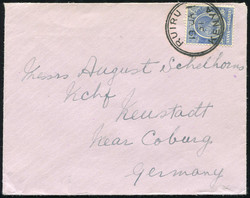 RUIRU
KENYA
Messrs August Schelhorns
Nchf
Neustadt
Near Coburg
Germany